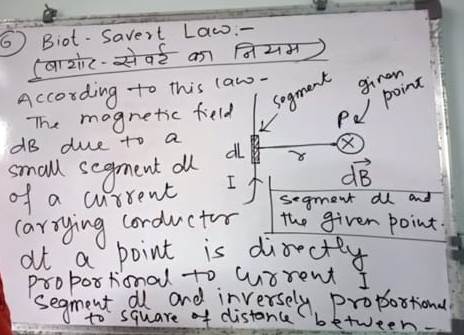 6) Biot - Savert Law:-
(बायोट - सेवर्ट का नियम)
According to this law -
The magnetic field
dB due to a
small segment dl
of a current
carrying conductor
at a point is directly
proportional to current I
segment dl and inversely proportional
to square of distance between
segment dl and
the given point.
segment
given
point
P
dL
r
I
dB